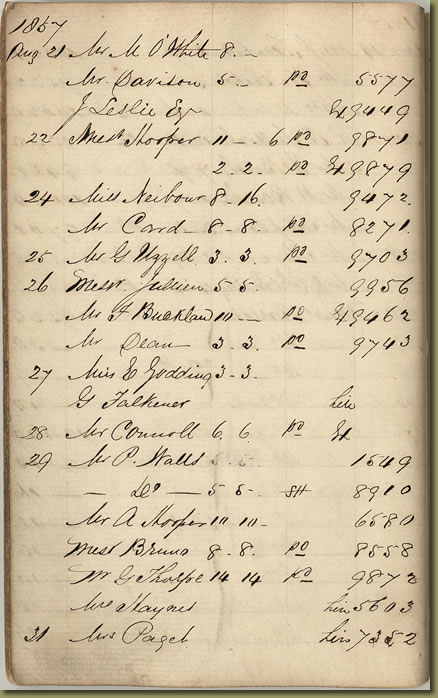 1857
Aug 21 Mr M O'White 8. –
Mr. Davison 5 – pd 5577
J Leslie Esq 49449
22 Messr Hooper 11 – 6 pd 9871
2. 2. pd 49879
24 Miss Neibour 8. 16. 9472.
Mr Card 8 – 8. pd 8271.
25 Mr G Uzzell 3. 3. pd 9703
26 Messr Jullien 5 5 9956
Mr F Bucklaw 10 – pd 49462
Mr Dean 3. 3. pd 9743
27 Miss E Godding 3 – 3.
G Falkener hire
28. Mr Connoll 6. 6. pd
29 Mr P. Watts 5. 5. 1549
— Do — 5 5 – SH 8910
Mr A Hooper 10 10 – 6580
Messr Bruno 8 – 8. pd 8558
Mr G Thorpe 14 14 pd 9872
Mrs Haynes hire 5603
31 Mrs Paget hire 7352